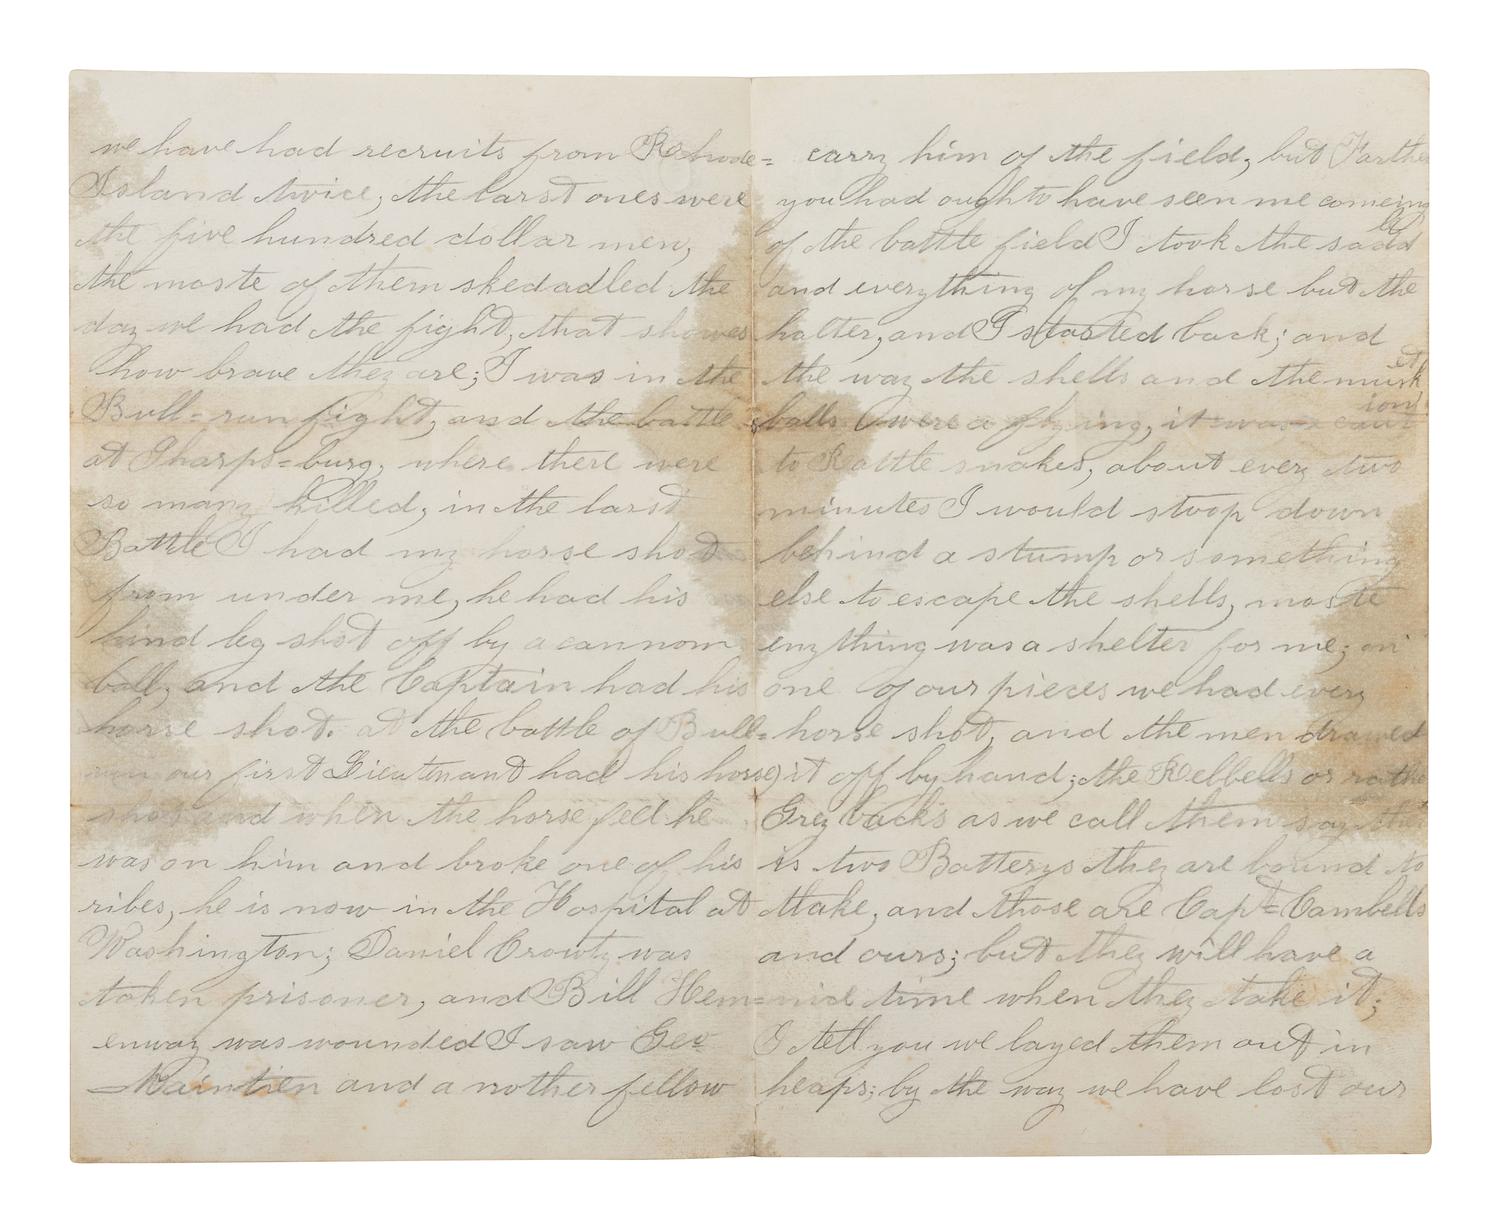 we have had recruits from Rhode=
Island twice, the larst ones were
the five hundred dollar men,
the moste of them skedadled the
day we had the fight, that showes
how brave they are; I was in the
Bull=run fight, and the battle
at Sharps=burg, where there were
so many killed, in the larst
Battle I had my horse shot
from under me, he had his
hind leg shot off by a cannom
ball, and the Captain had his
horse shot. at the battle of Bull=
run our first Lieutenant had his horse
shot and when the horse fell he
was on him and broke one of his
ribes, he is now in the Hospital at
Washington; Daniel Crowty was
taken prisoner, and Bill Hem=
enway was wounded I saw Geo=
Maintien and a nother fellow
carry him of the field, but Farther
you had ought to have seen me comeing
of the battle field I took the saddle
and everything of my horse but the
halter, and I started back; and
the way the shells and the musket
balls were a flying, it was a caution
to Rattle snakes, about every two
minutes I would stoop down
behind a stump or something
else to escape the shells, moste
enything was a shelter for me; on
one of our pieces we had every
horse shot, and the men drawed
it off by hand; the Rebbells or rather
Grey backs as we call them say there
is two Batterys they are bound to
take, and those are Capt= Cambells
and ours; but they will have a
nice time when they take it;
I tell you we layed them out in
heaps; by the way we have lost our